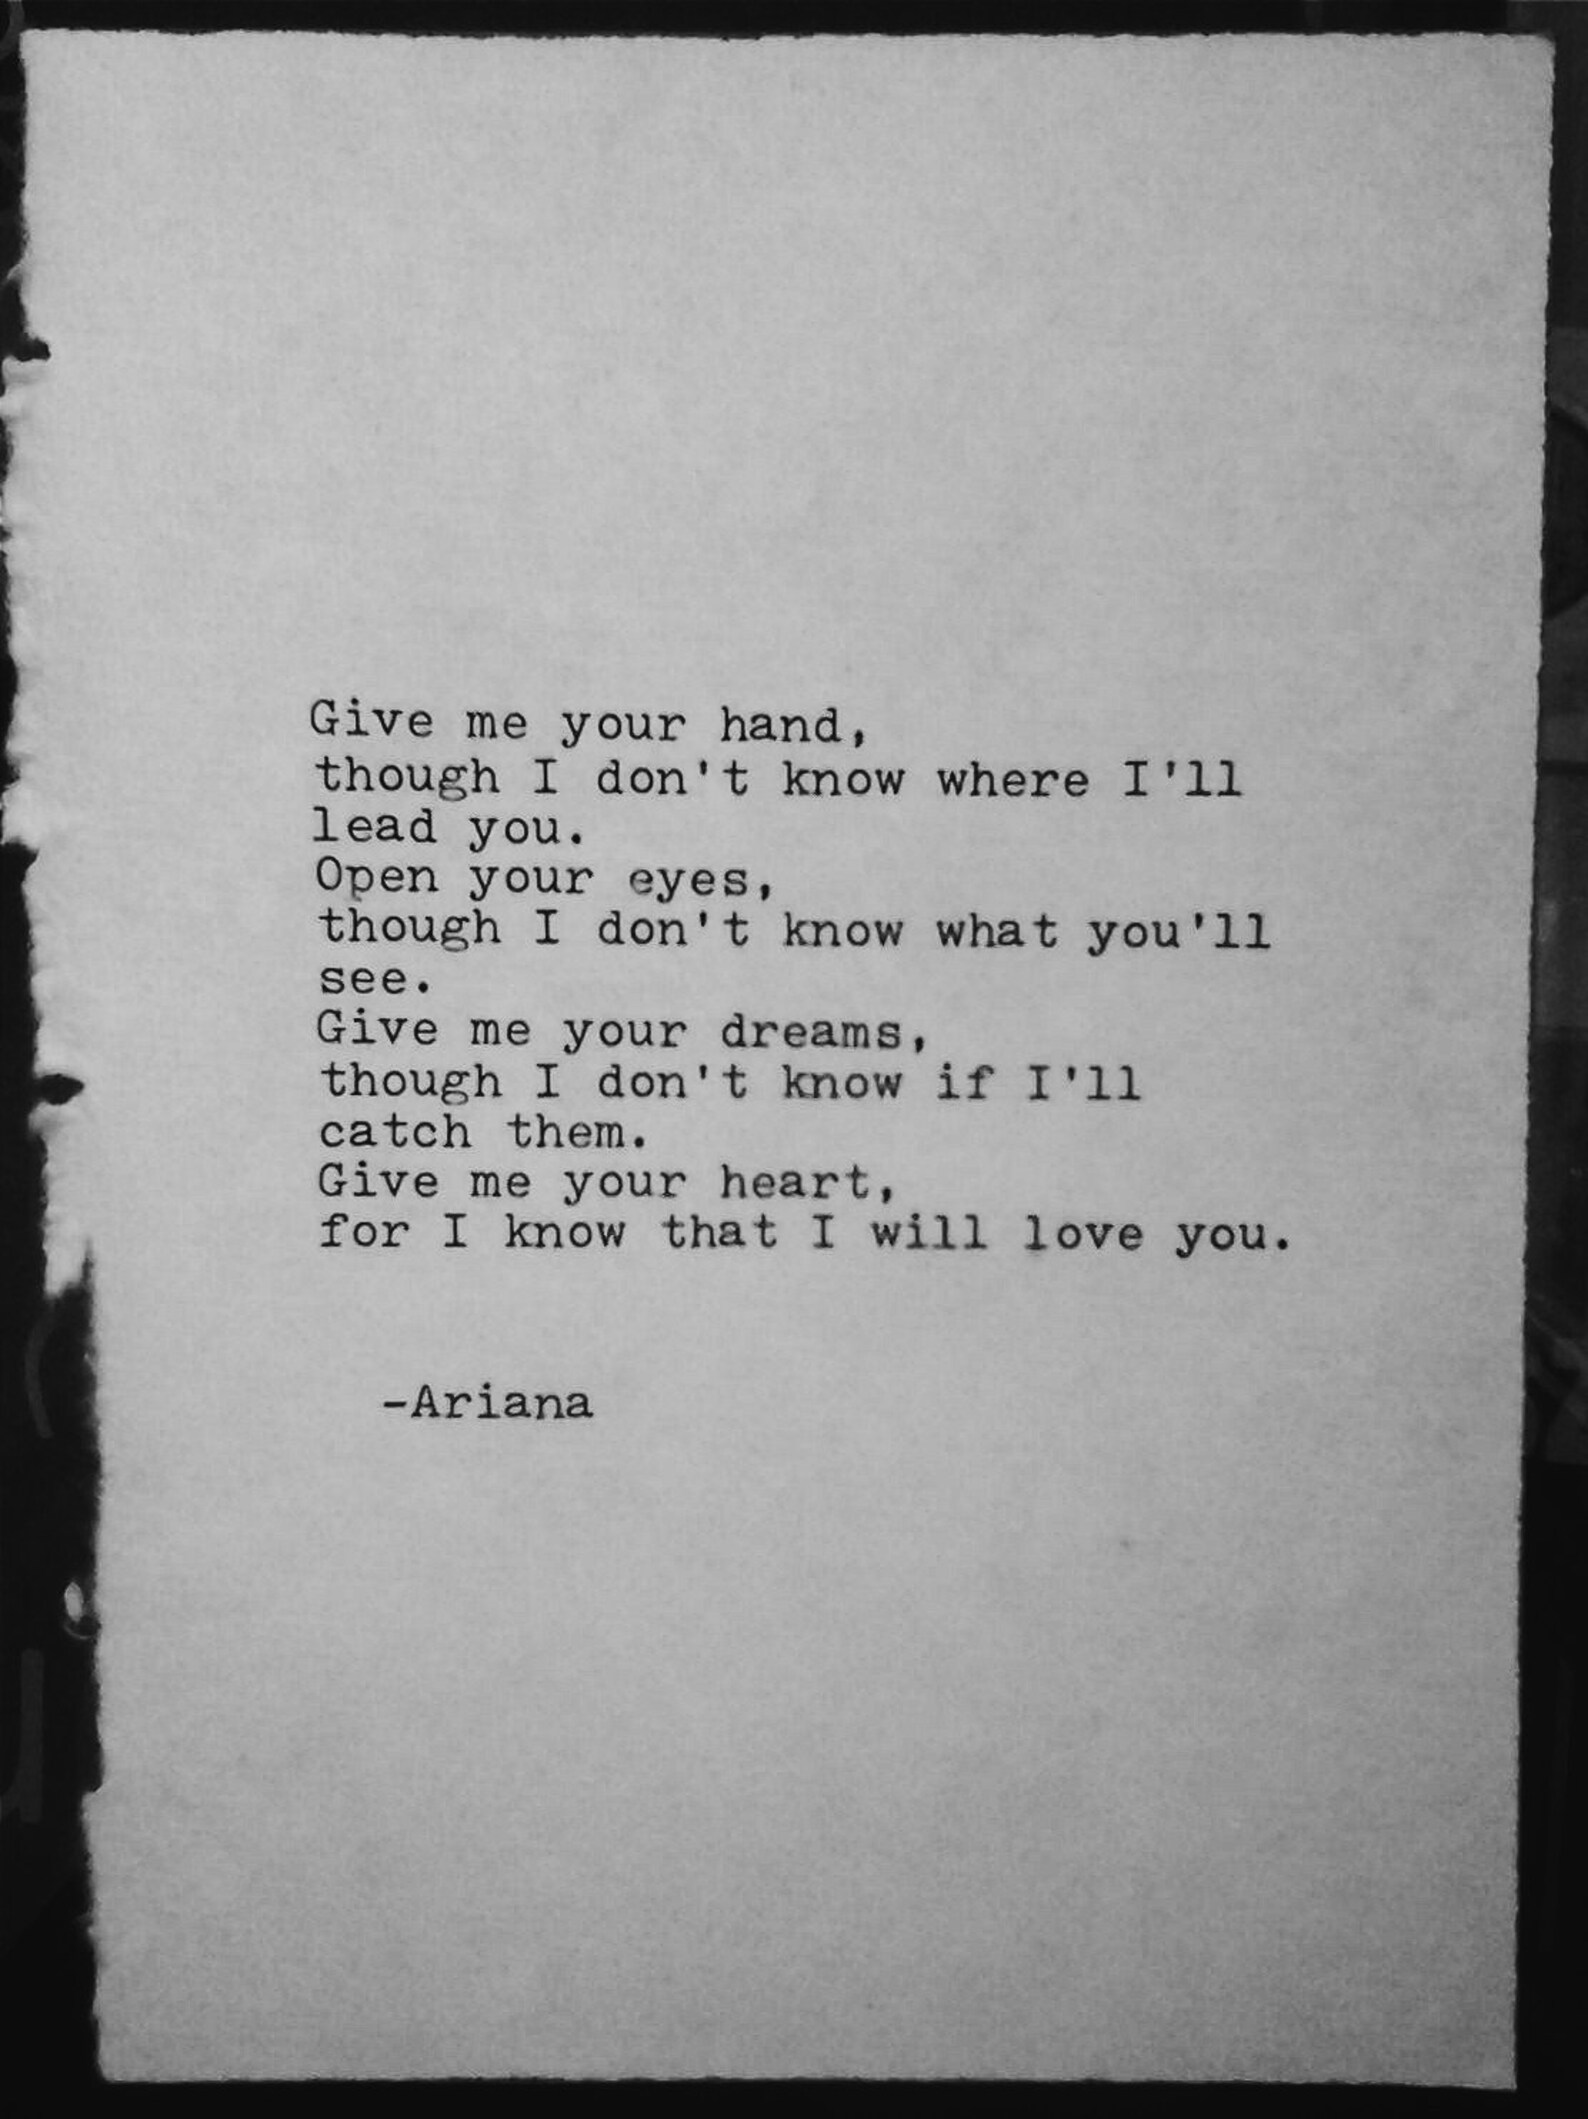 Give me your hand,
though I don't know where I'll
lead you.
Open your eyes,
though I don't know what you'll
see.
Give me your dreams,
though I don't know if I'll
catch them.
Give me your heart,
for I know that I will love you.
-Ariana